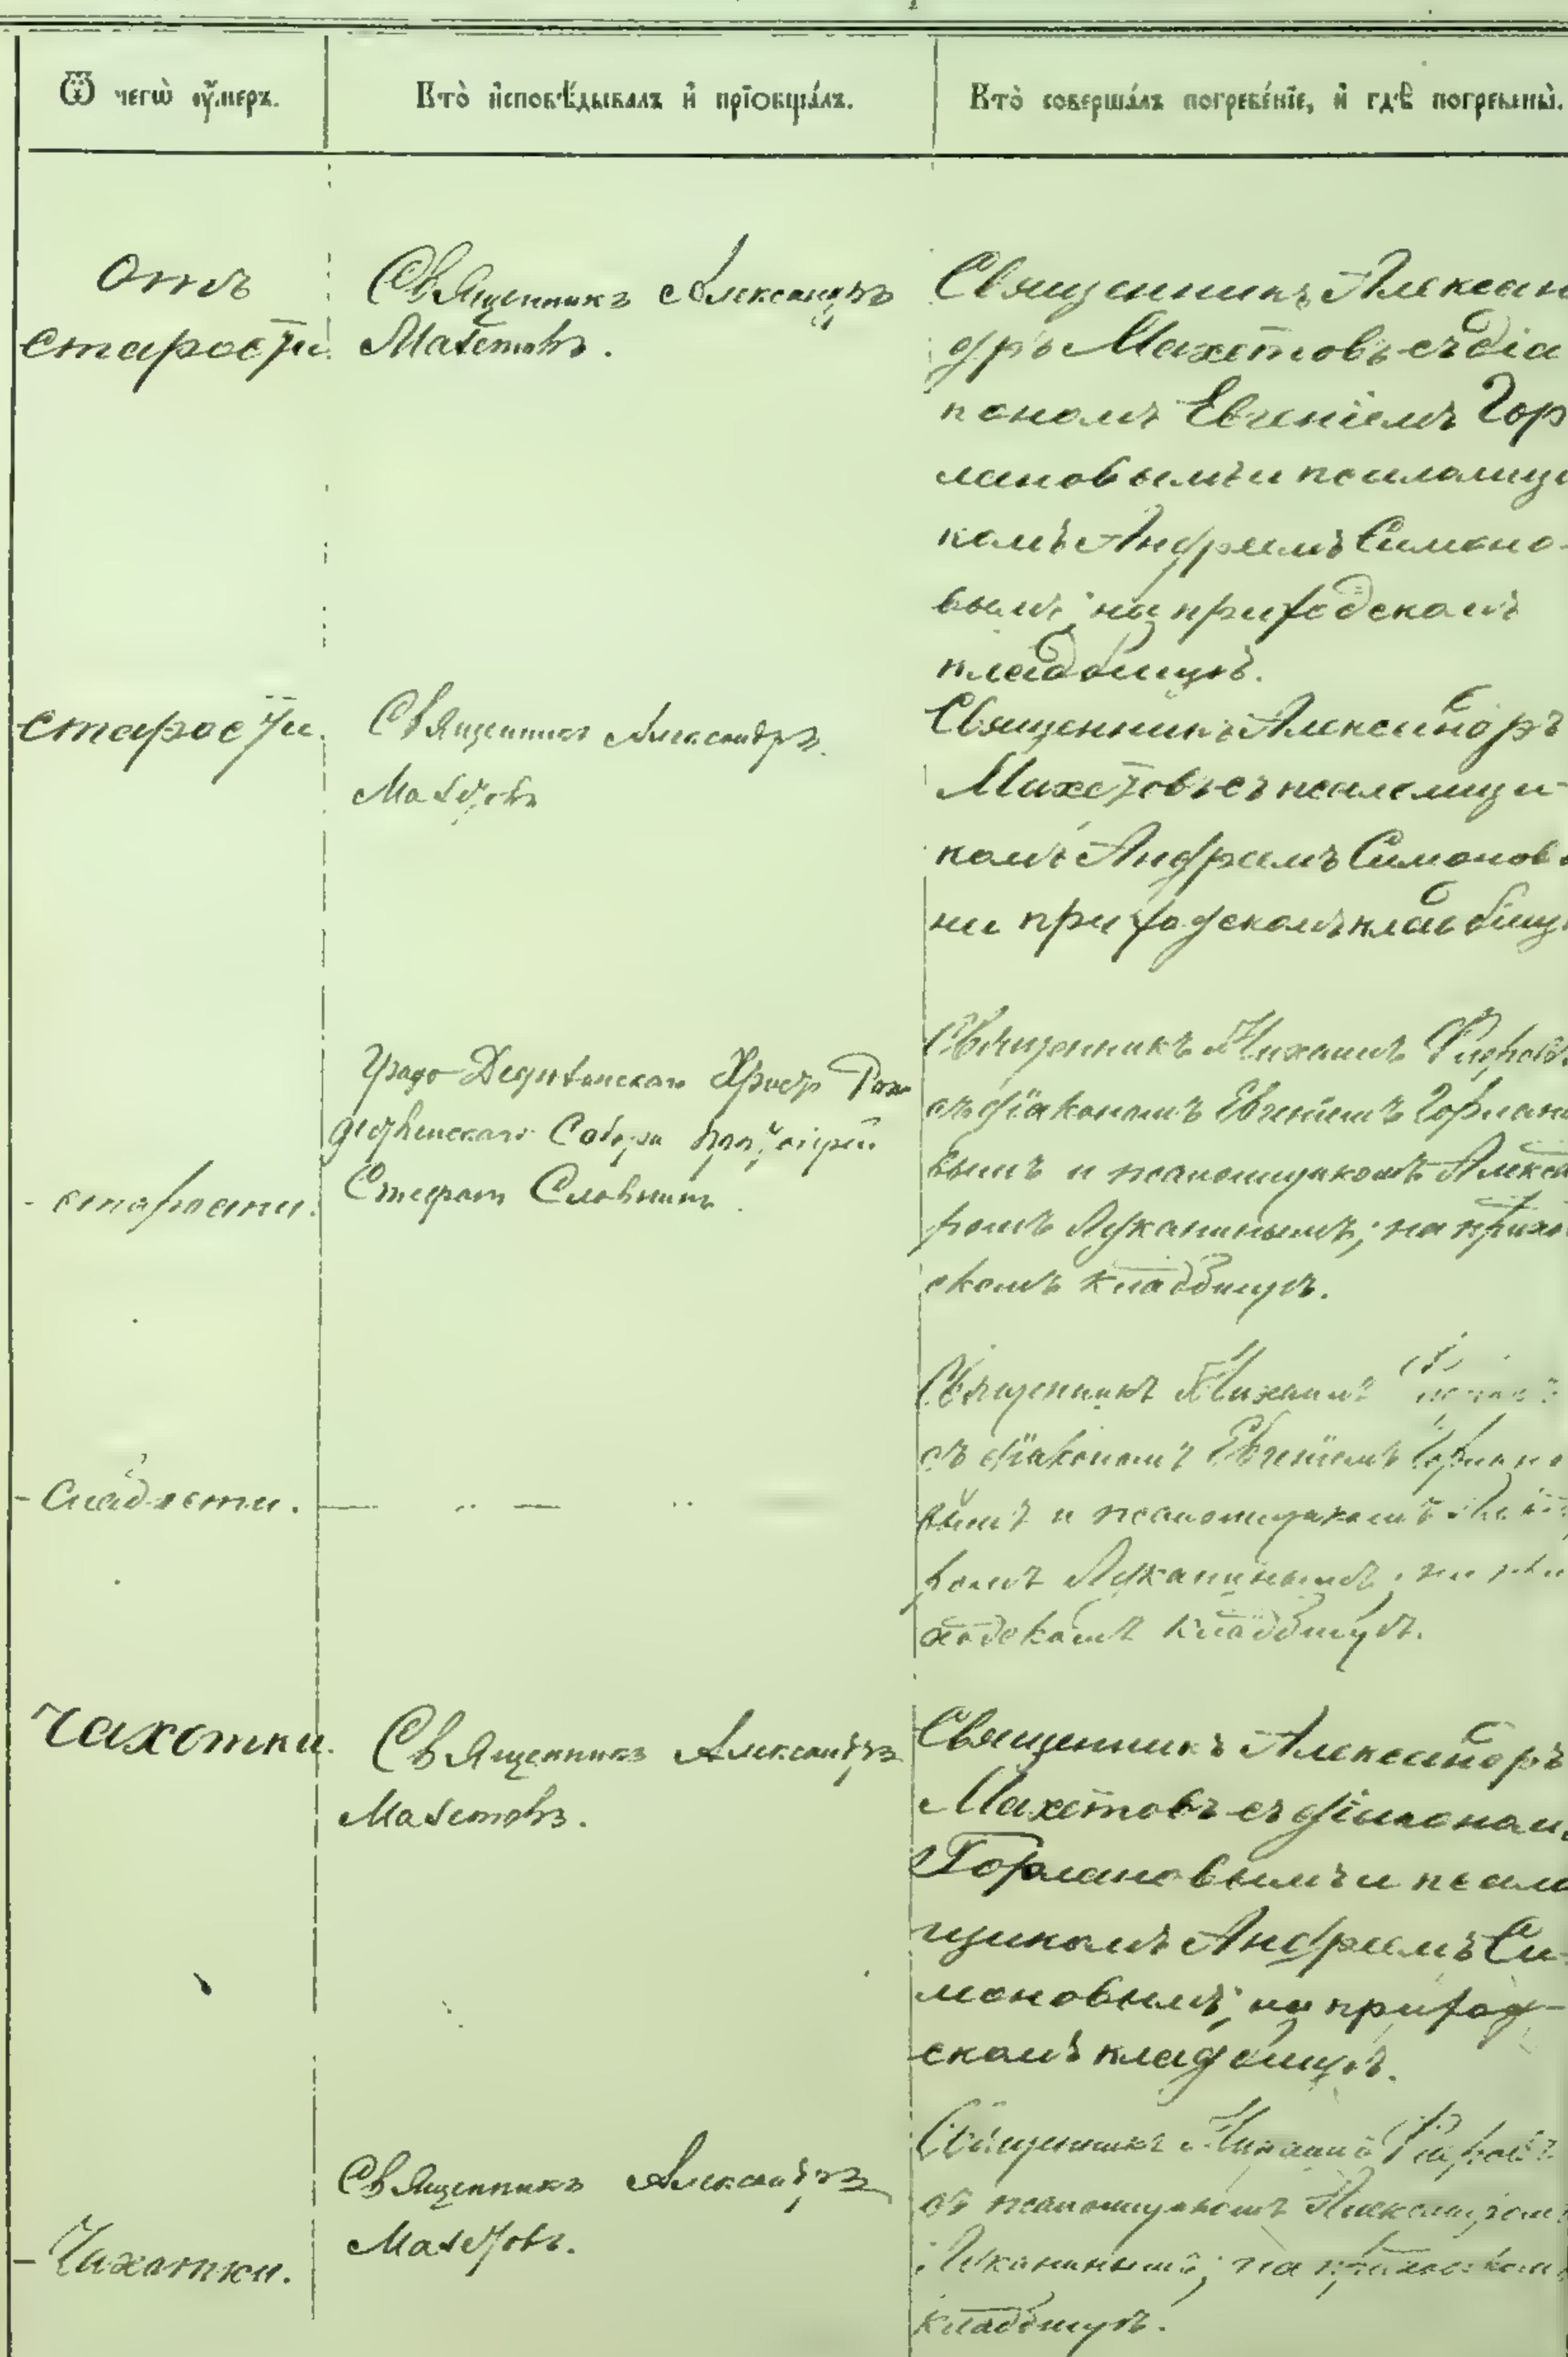 Ѿ чегѡ̀ ѹ҆́меръ.
Кто̀ и҆сповѣ́дывалъ и҆ прїѻбща́лъ.
Кто̀ соверша́лъ погребе́нїе, и҆ гдѣ̀ погребены̀.
Отъ
старости.
Священникъ Александръ
Махетовъ.
Священникъ Алексан
дръ Махетовъ съ діа
кономъ Евгеніемъ Гор
лановымъ и псаломщи
комъ Андреемъ Симоно-
вымъ; на приходскомъ
кладбищѣ.
старости.
Священникъ Александръ
Махетовъ
Священникъ Александръ
Махетовъ съ псаломщи-
комъ Андреемъ Симонов
на приходскомъ кладбищ
- старости.
Градо
Христо Рож
дественскаго Собора протоіерей
Стефанъ
Священникъ Михаилъ
съ діакономъ Евгеніемъ Горлано
вымъ и псаломщикомъ Алекса
ромъ Луканинымъ; на прихо
скомъ кладбищѣ.
- Слабости.
Священникъ Михаилъ
съ діакономъ Евгеніемъ Горлано
вымъ и псаломщикомъ
ромъ Луканинымъ; на при
ходскомъ кладбищѣ.
Чахотки.
Священникъ Александръ
Махетовъ.
Священникъ Александръ
Махетовъ съ діакономъ
Горлановымъ и псалом
щикомъ Андреемъ Си-
моновымъ; на приход-
скомъ кладбищѣ.
- Чахотки.
Священникъ Александръ
Махетовъ.
Священникъ Михаилъ
съ псаломщикомъ Александромъ
Луканинымъ; на приходскомъ
кладбищѣ.